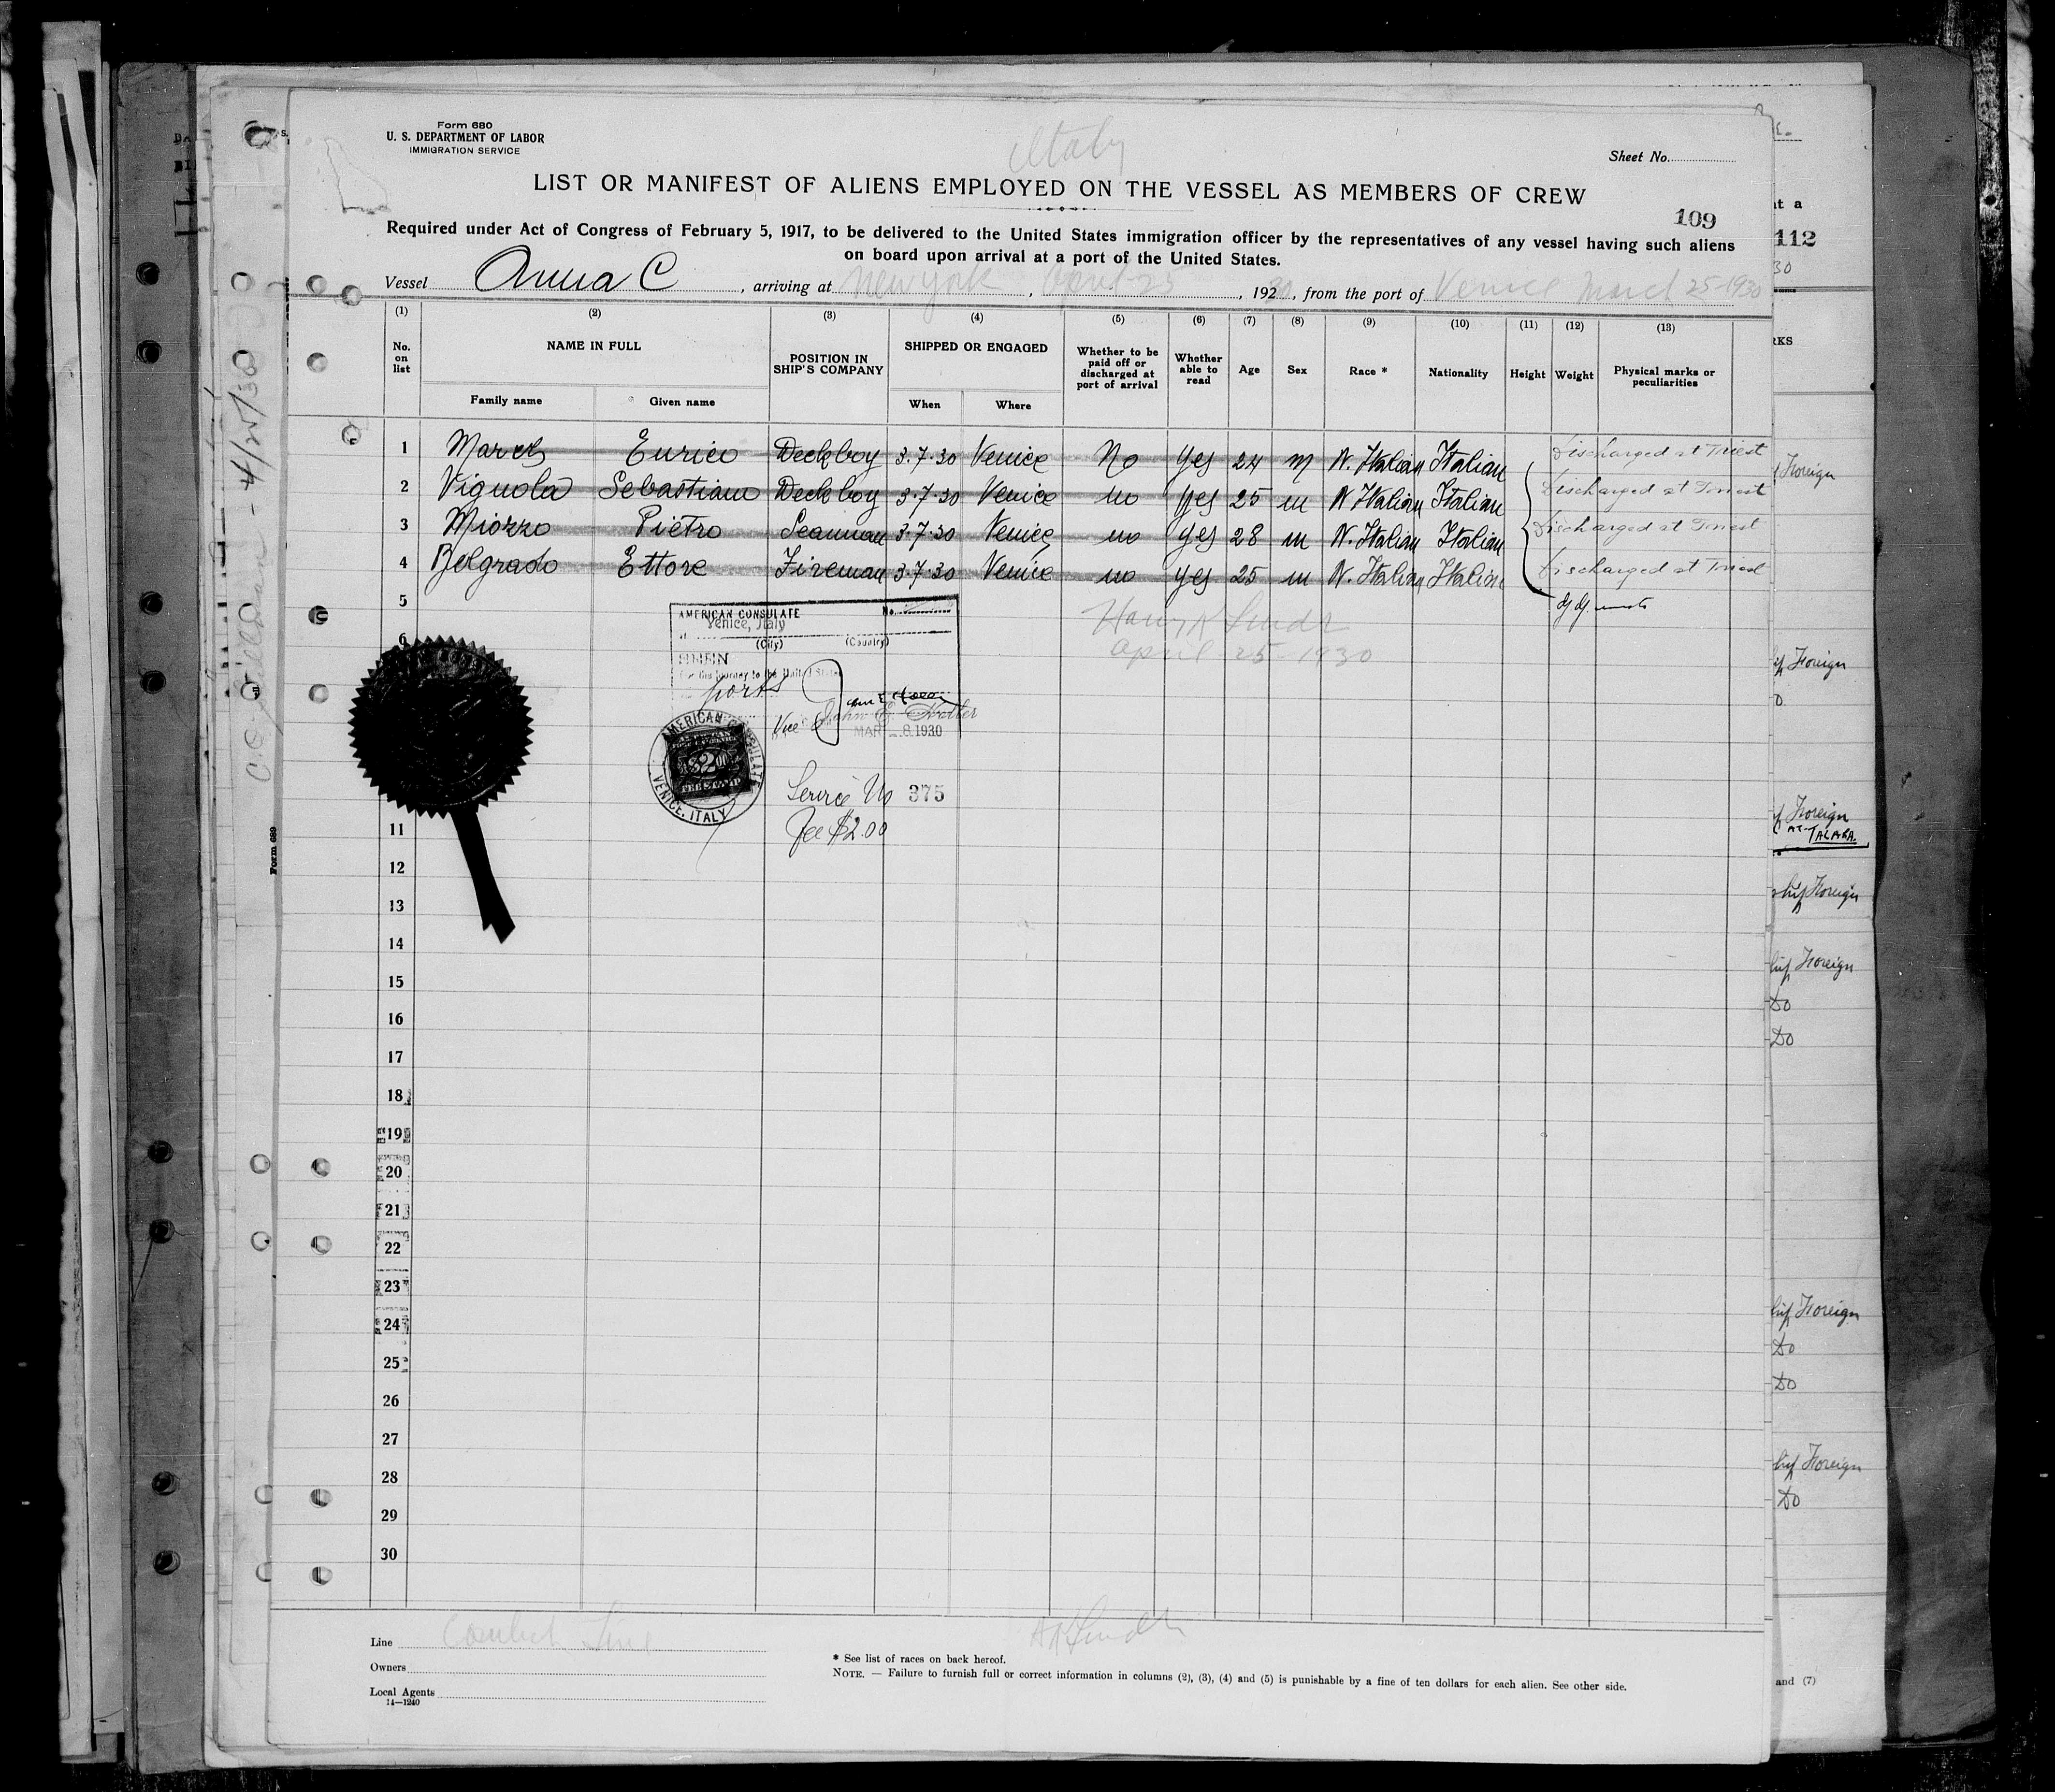 Form 680
U. S. DEPARTMENT OF LABOR
IMMIGRATION SERVICE
Italy
Sheet No.
LIST OR MANIFEST OF ALIENS EMPLOYED ON THE VESSEL AS MEMBERS OF CREW
109
Required under Act of Congress of February 5, 1917, to be delivered to the United States immigration officer by the representatives of any vessel having such aliens
on board upon arrival at a port of the United States.
Vessel Anna C, arriving at New York, April 25, 1930, from the port of Venice March 25-1930
(1) (2) (3) (4) (5) (6) (7) (8) (9) (10) (11) (12) (13)
No. on list NAME IN FULL POSITION IN SHIP'S COMPANY SHIPPED OR ENGAGED Whether to be paid off or discharged at port of arrival Whether able to read Age Sex Race * Nationality Height Weight Physical marks or peculiarities
Family name Given name When Where
1 Enrico Deckboy 3.7.30 Venice No Yes 24 m N. Italian Italian Discharged at Triest
2 Vignola Sebastiano Deckboy 3.7.30 Venice no yes 25 m N Italian Italian Discharged at Triest
3 Miozzo Pietro Seaman 3.7.30 Venice no yes 28 m N. Italian Italian Discharged at Triest
4 Belgrado Ettore Fireman 3.7.30 Venice no yes 25 m N. Italian Italian Discharged at Triest
5
6
AMERICAN CONSULATE No.
Venice, Italy
(City) (Country)
SEEN
For the journey to the United States
Vice
MAR - 8 1930
April 25-1930
AMERICAN CONSULATE
VENICE, ITALY
$2.00
FEE STAMP
Service No 375
Fee $2.00
11
12
13
14
15
16
17
18
19
20
21
22
23
24
25
26
27
28
29
30
Line
Owners
Local Agents
14—1240
* See list of races on back hereof.
NOTE. — Failure to furnish full or correct information in columns (2), (3), (4) and (5) is punishable by a fine of ten dollars for each alien. See other side.
Form 689
4/25/30
at a
112
30
RKS
Foreign
Foreign
Do
Foreign
AT TALARA.
ship Foreign
Foreign
Do
Do
Foreign
Do
Do
Foreign
Do
and (7)